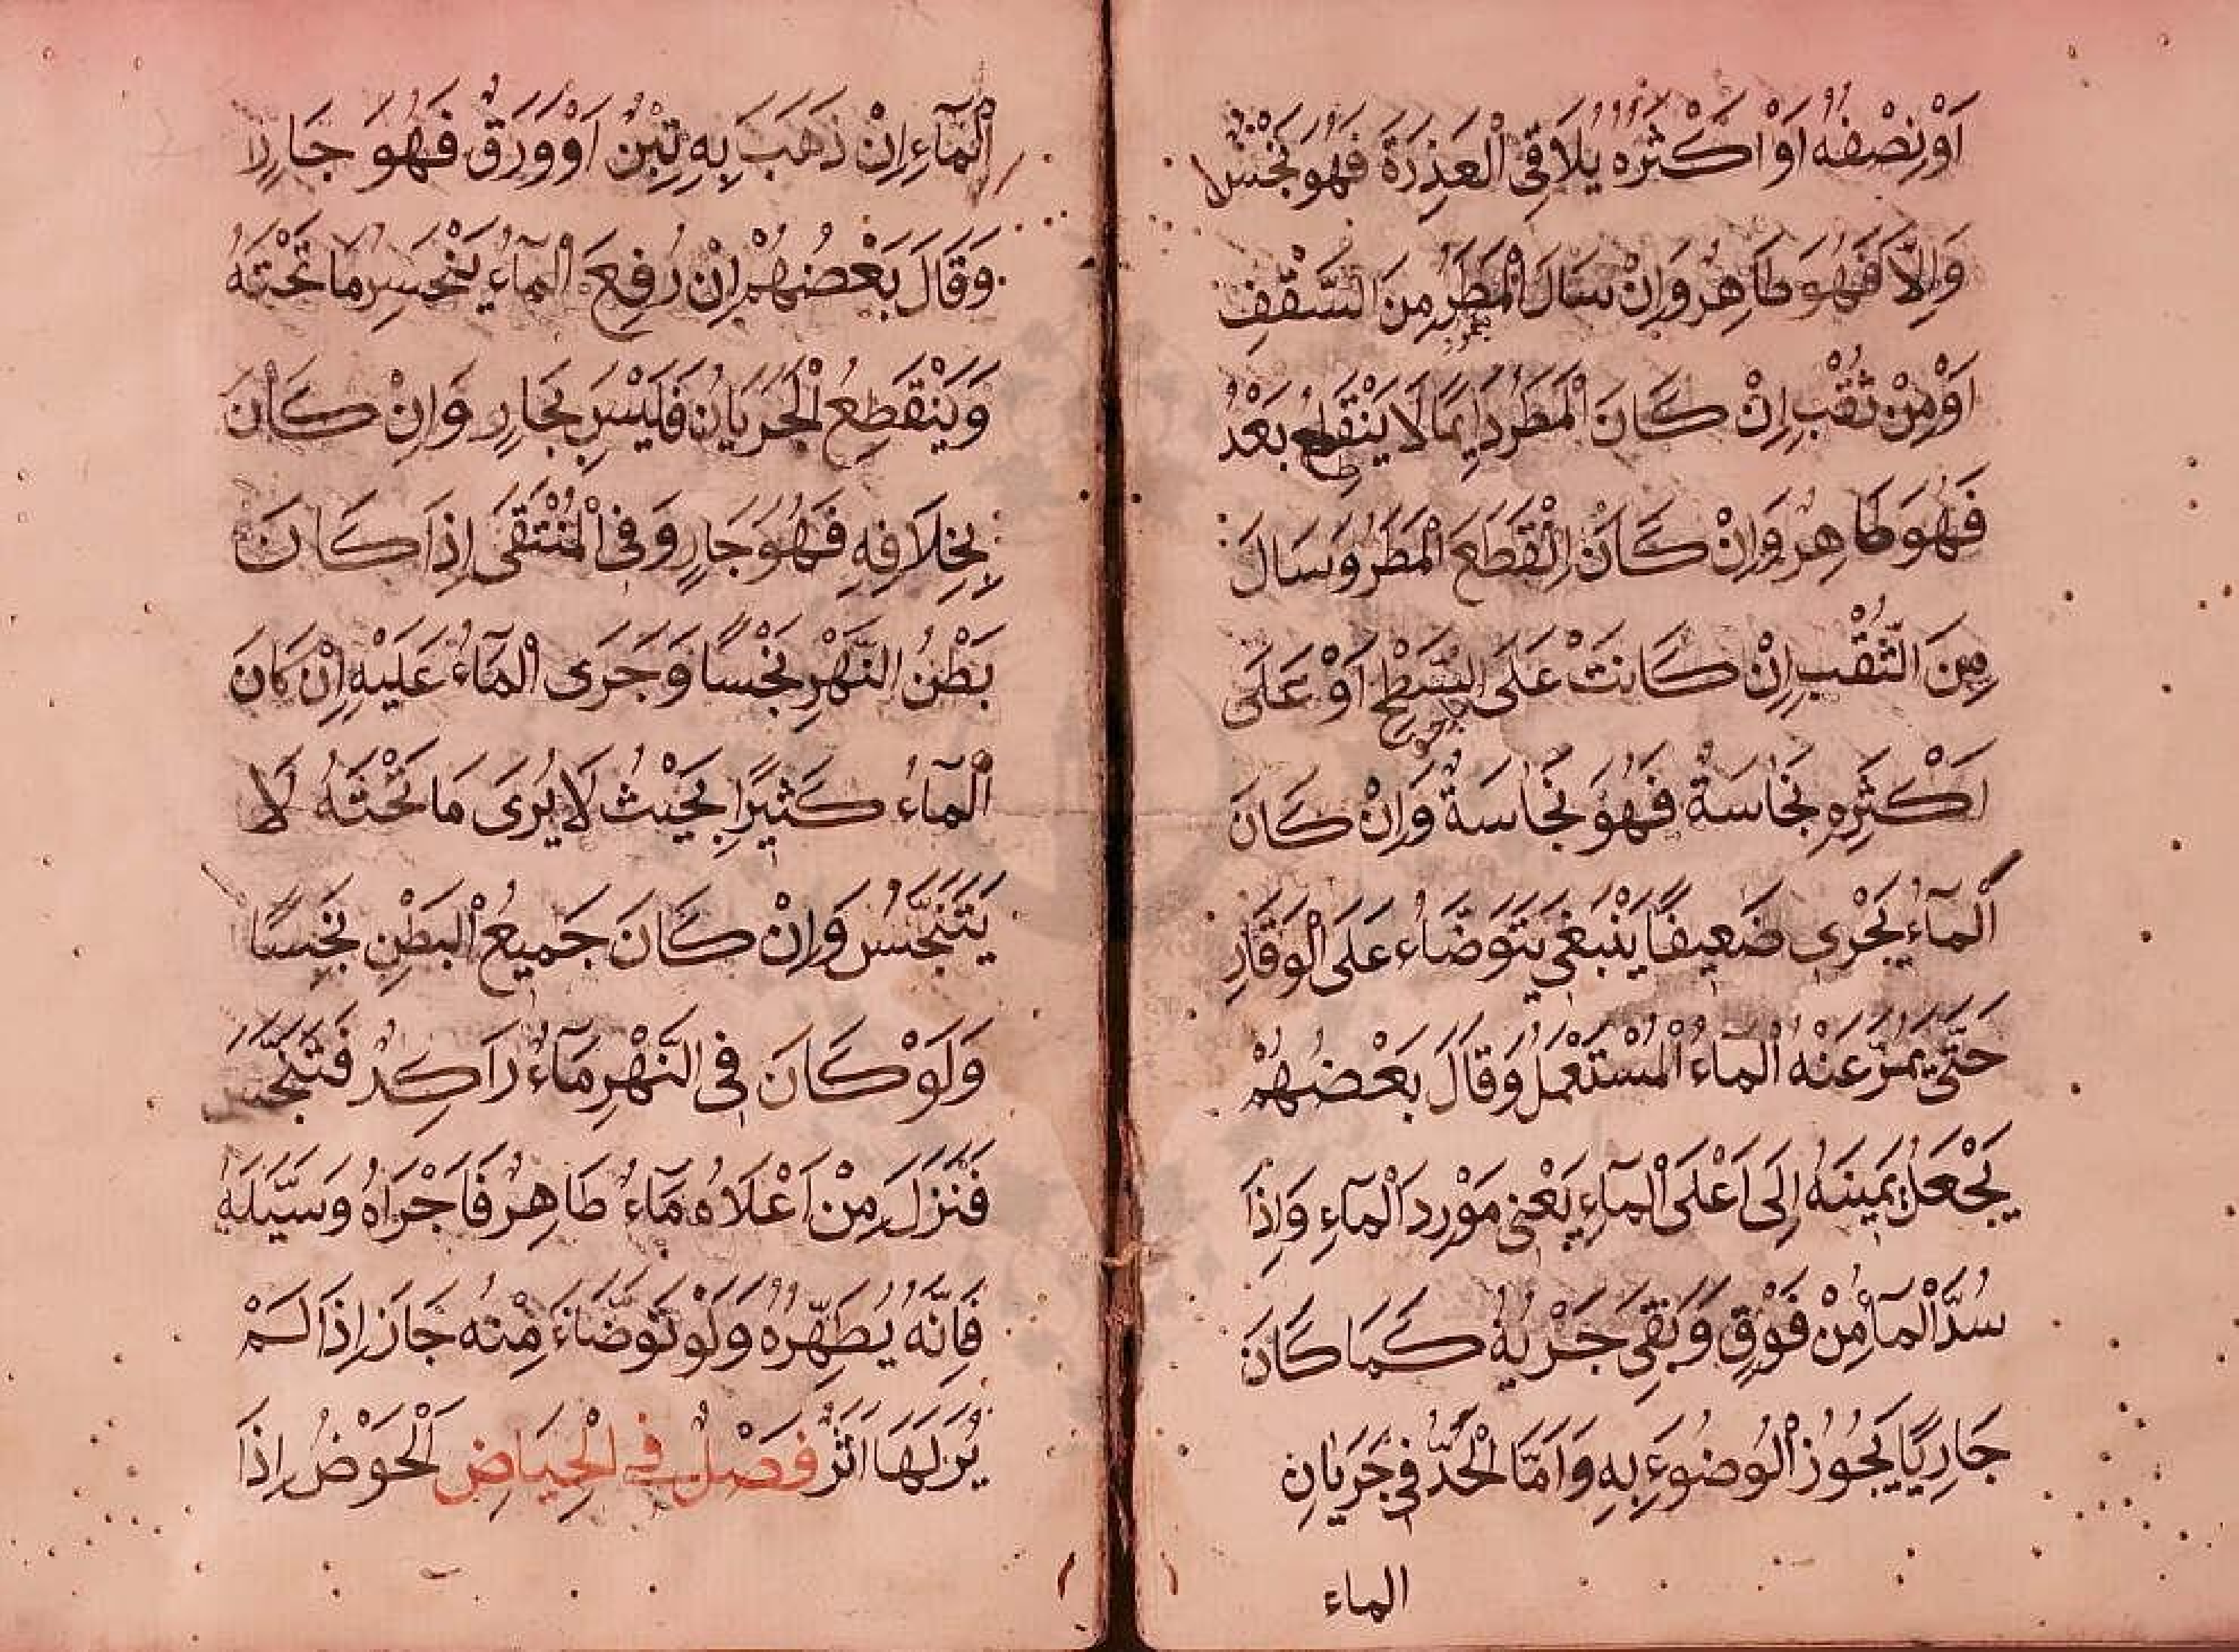 اَوْ نِصْفُهُ اَوْ اَكْثَرُهُ يُلَاقِى الْعَذِرَةَ فَهُوَ نَجْسٌ
وَاِلَّا فَهُوَ طَاهِرٌ وَاِنْ سَالَ الْمَطَرُ مِنَ السَّقْفِ
اَوْ مِنْ ثُقْبٍ اِنْ كَانَ الْمَطَرُ دَايِمًا لَا يَنْقَطِعُ بَعْدُ
فَهُوَ طَاهِرٌ وَاِنْ كَانَ اِنْقَطَعَ الْمَطَرُ وَسَالَ
مِنَ الثُّقْبِ اِنْ كَانَتْ عَلَى السَّطْحِ اَوْ عَلَى
اَكْثَرِهِ نَجَاسَةٌ فَهُوَ نَجَاسَةٌ وَاِنْ كَانَ
الْمَآءُ يَجْرِى ضَعِيفًا يَنْبَغِى يَتَوَضَّاءُ عَلَى الْوَقَارِ
حَتَّى يَمُرَّ عَنْهُ الْمَاءُ الْمُسْتَعْمَلُ وَقَالَ بَعْضُهُمْ
يَجْعَلُ يَمِينَهُ اِلَى اَعْلَى الْمَآءِ يَعْنِى مَوْرِدَ الْمَآءِ وَاِذَا
سُدَّ الْمَآءُ مِنْ فَوْقٍ وَبَقِىَ جَرْيُهُ كَمَا كَانَ
جَارِيًا يَجُوُزُ الْوُضُوءِ بِهِ وَاَمَّا الْحَدُّ فِى جَرَيَانِ
الماء
الْمَآءِ اِنْ ذَهَبَ بِهِ تِبْنٌ اَوْ وَرَقٌ فَهُوَ جَارٍ
وَقَالَ بَعْضُهُمْ اِنْ رُفِعَ الْمَآءُ يَنْحَسِرُ مَا تَحْتَهُ
وَيَنْقَطِعُ الْجَرَيَانُ فَلَيْسَ بِجَارٍ وَاِنْ كَانَ
بِخِلَافِهِ فَهُوَ جَارٍ وَفِى الْمُنْتَقَى اِذَا كَانَ
بَطْنُ النَّهْرِ نَجْسًا وَجَرَى الْمَآءُ عَلَيْهِ اِنْ كَانَ
الْمَآءُ كَثِيرًا بِحَيْثُ لَا يُرَى مَا تَحْتَهُ لَا
يَتَنَجَّسُ وَاِنْ كَانَ جَمِيعُ الْبَطْنِ نَجِسًا
وَلَوْ كَانَ فِى النَّهْرِ مَآءٌ رَاكِدٌ فَتَنَجَّسَ
فَنَزَلَ مِنْ اَعْلَاهُ مَآءٌ طَاهِرٌ فَاَجْرَاهُ وَسَيَّلَهُ
فَاِنَّهُ يُطَهِّرُهُ وَلَوْ تَوَضَّاءَ مِنْهُ جَازَ اِذَا لَمْ
يُرَ لَهَا اَثَرٌ فَصْلٌ فِى الْحِيَاضِ اَلْحَوْضُ اِذَا